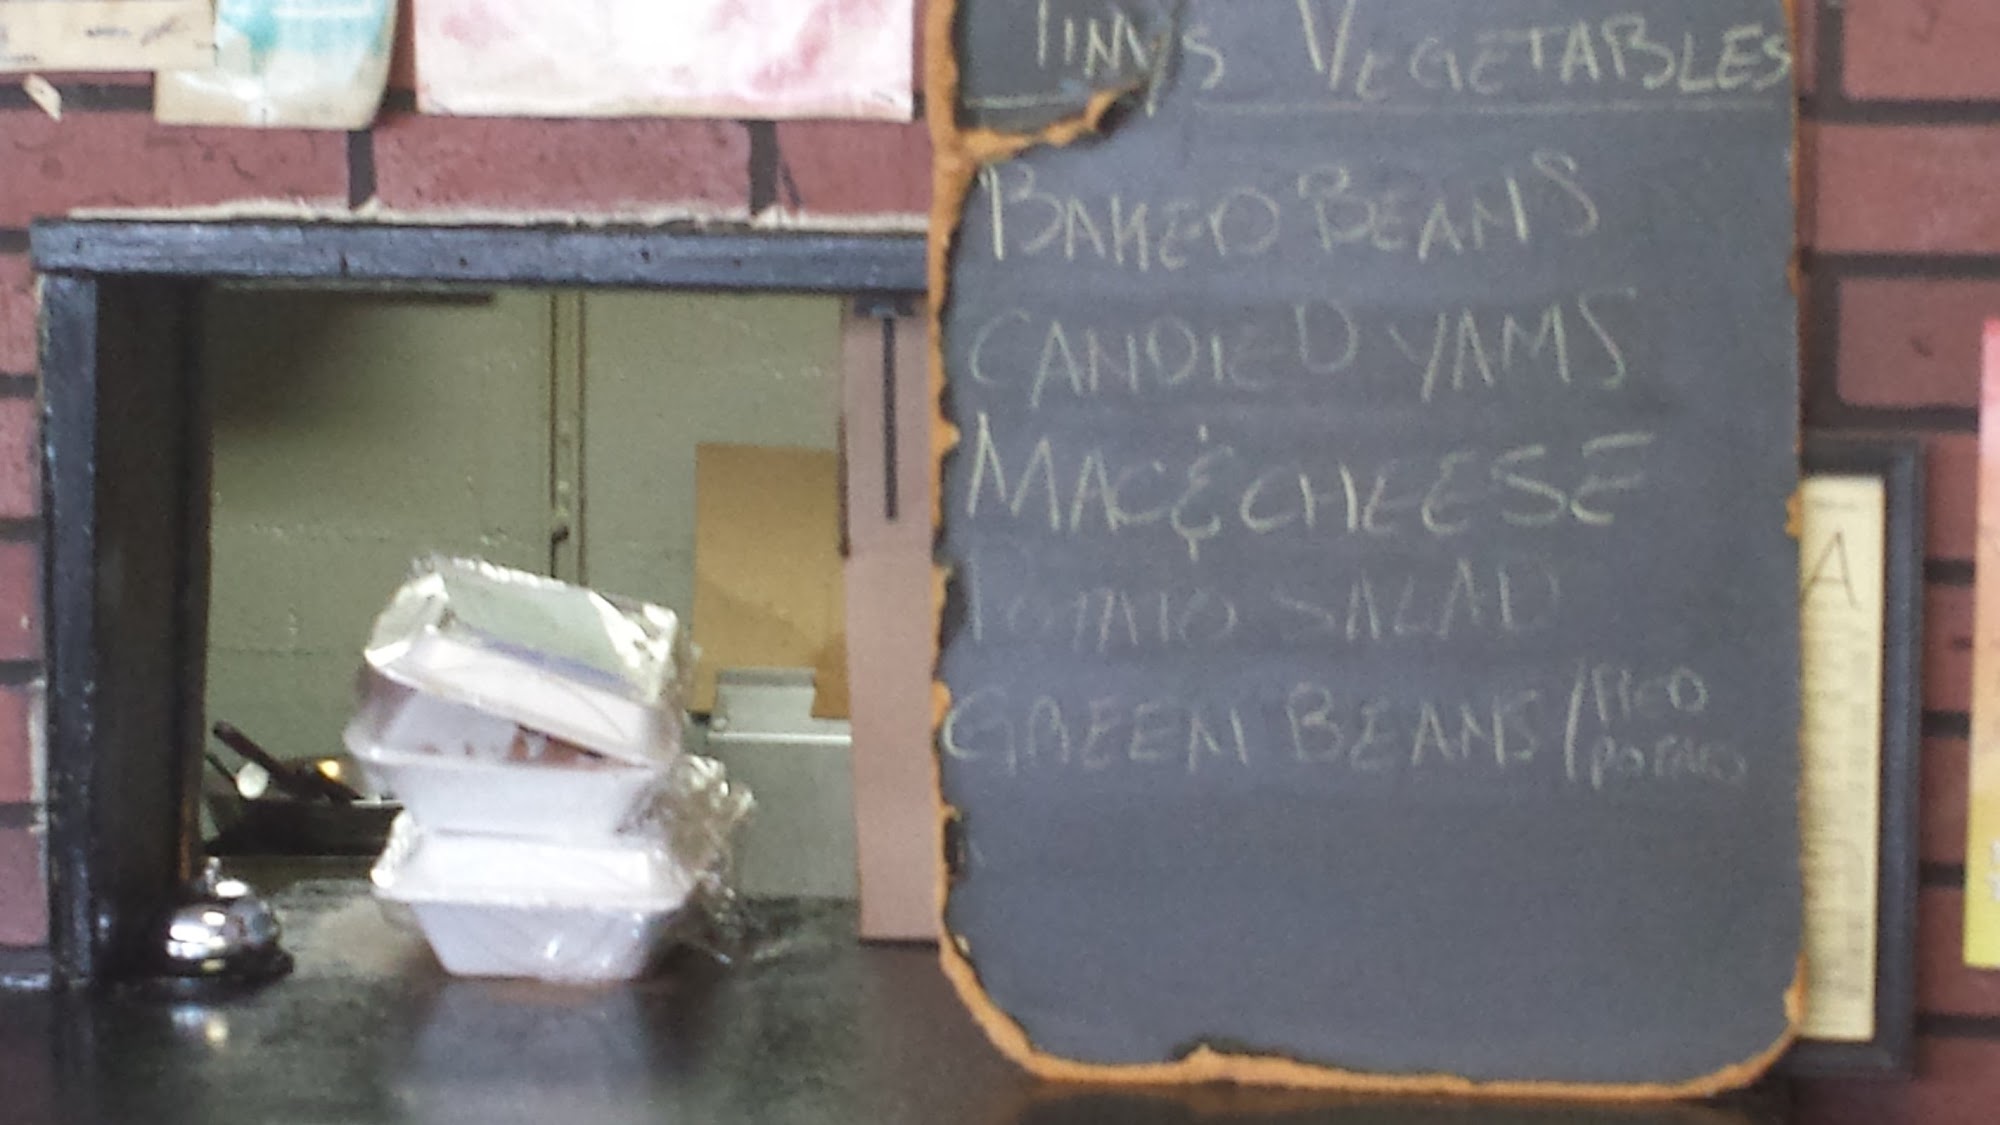 Tiny's Vegetables
BAKED BEANS
CANDIED YAMS
MAC & CHEESE
POTATO SALAD
GREEN BEANS / PIED
POTATO
A